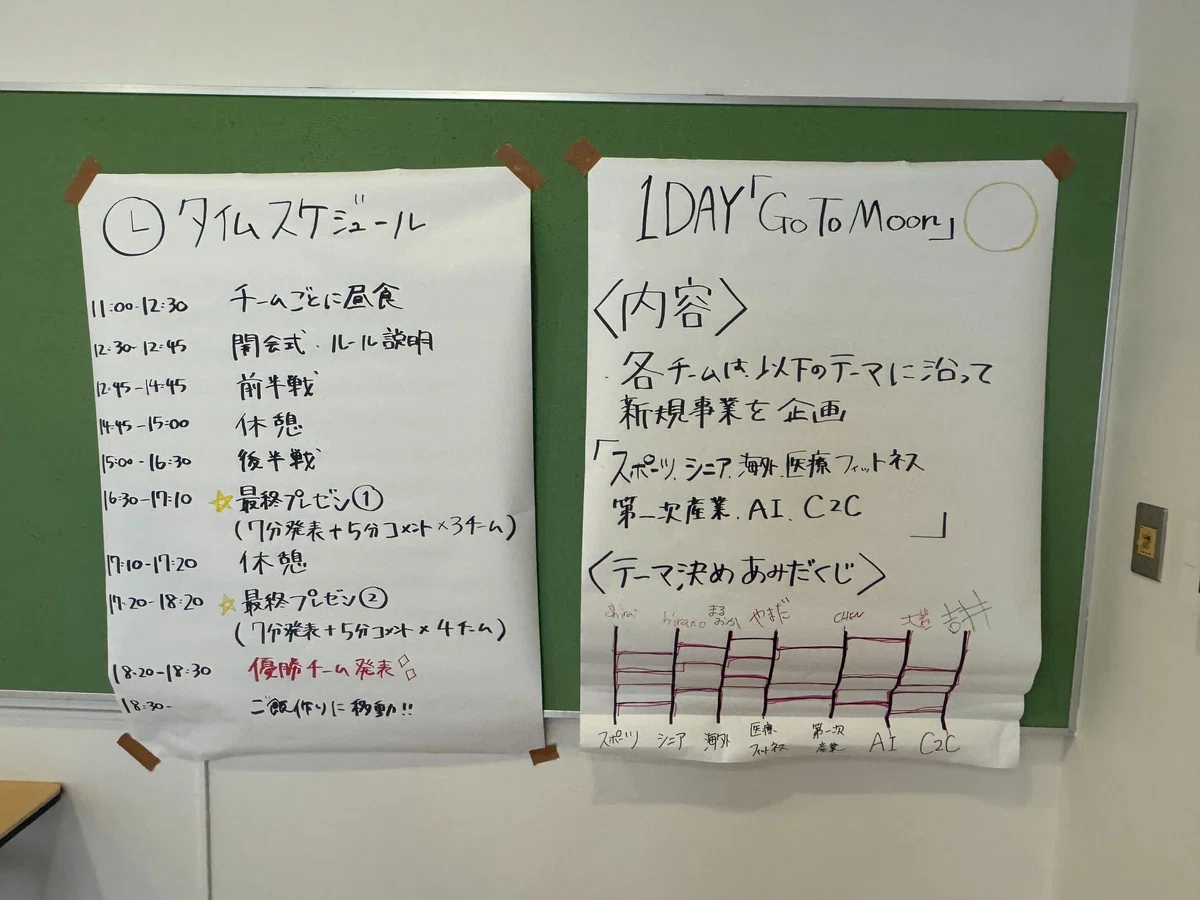 タイムスケジュール
11:00-12:30 チームごとに昼食
12:30-12:45 開会式・ルール説明
12:45-14:45 前半戦
14:45-15:00 休憩
15:00-16:30 後半戦
16:30-17:10 ☆最終プレゼン①
(7分発表+5分コメント×3チーム)
17:10-17:20 休憩
17:20-18:20 ☆最終プレゼン②
(7分発表+5分コメント×4チーム)
18:20-18:30 優勝チーム発表
18:30- ご飯作りに移動!!
1DAY「Go To Moon」
〈内容〉
各チームは、以下のテーマに沿って
新規事業を企画
「スポーツ、シニア、海外、医療フィットネス
第一次産業、AI、C2C
」
〈テーマ決めあみだくじ〉
shirai hirano まるおか やまだ CHEN 吉井
スポーツ シニア 海外 医療フィットネス 第一次産業 AI C2C